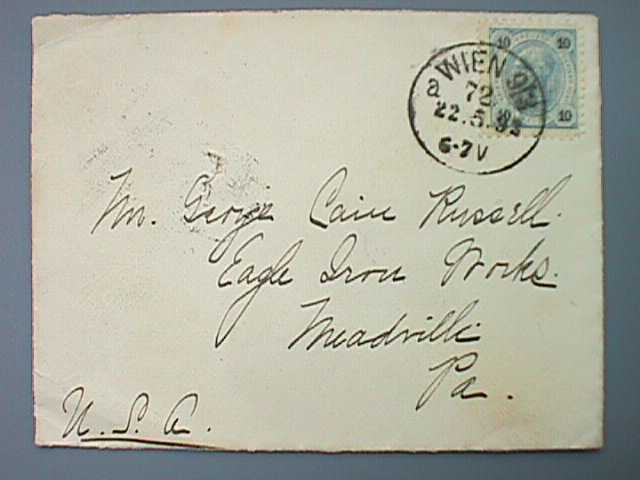 10 10
10
WIEN 9/3
a 72
22.5.93
6-7V
Mr. George Cain Russell.
Eagle Iron Works.
Meadville
Pa.
U. S. A.